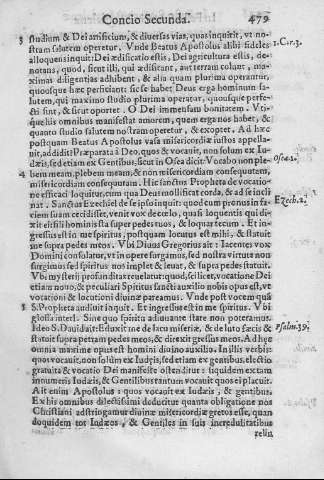 Concio Secunda. 479
3 studium & Dei artificium, & diversas vias, quas inquirit, ut no-
stram salutem operetur. Vnde Beatus Apostolus alibi fideles 1. Cor. 3.
alloquens inquit: Dei ædificatio estis, Dei agricultura estis, de-
notans, quod, sicut illi, qui ædificant, aut terram colunt, ma-
ximas diligentias adhibent, & alia quam plurima operantur,
quousque hæc perficiant: sic se habet Deus erga hominum sa-
lutem, qui maximo studio plurima operatur, quousque perfe-
cti sint, & sicut oportet. O Dei immensam bonitatem. Vti-
que his omnibus manifestat amorem, quem erga nos habet, &
quanto studio salutem nostram operetur, & exoptet. Ad hæc
postquam Beatus Apostolus vasa misericordiæ iustos appella-
vit, addidit: Præparata à Deo, quos & vocavit, non solum ex Iu-
dæis, sed etiam ex Gentibus, sicut in Osea dicit: Vocabo non ple- Osee 2.
4 bem meam, plebem meam, & non misericordiam consequutam,
misericordiam consequutam. Hic sanctus Propheta de vocatio-
ne efficaci loquitur, cum qua Deus mollificat corda, & ad se incli-
nat. Sanctus Ezechiel de se ipso inquit: quod cum pronus in fa- Ezech. 2.
ciem suam cecidisset, venit vox de cœlo, quasi loquentis qui di-
xit ei: fili hominis sta super pedes tuos, & loquar tecum. Et in-
gressus est in me spiritus, postquam locutus est mihi, & statuit
me supra pedes meos. Vbi Divus Gregorius ait: Iacentes vox
Domini consolatur, ut in opere surgamus, sed nostra virtute non
surgimus sed spiritus nos implet & levat, & supra pedes statuit.
Vbi mysterij profunditas revelatur: quod, scilicet, vocatione Dei
etiam novo, & peculiari Spiritus sancti auxilio nobis opus est, ut
vocationi & locutioni divinæ pareamus. Vnde post vocem quâ
5 S. Propheta audivit inquit. Et ingressus est in me spiritus. Vbi
glossa interl. Sine quo spiritu adiuvante stare non poteramus.
Ideo S. David ait: Eduxit me de lacu miseriæ, & de luto fæcis & Psalm. 39.
statuit supra petram pedes meos, & direxit gressus meos. Ad hæc
omnia maxime opus est homini divino auxilio. In illis verbis:
quos vocavit, non solùm ex Iudæis, sed etiam ex gentibus, electio
gratuita & vocatio Dei manifeste ostenditur: siquidem ex tam
innumeris Iudæis, & Gentilibus tantum vocavit quos ei placuit.
Ait enim Apostolus: quos vocavit ex Iudæis, & gentibus.
Ex his omnibus dilectissimi deducitur quanta obligatione nos
Christiani adstringamur divinæ misericordiæ gratos esse, quan
doquidem tot Iudæos, & Gentiles in suis incredulitatibus
reliu